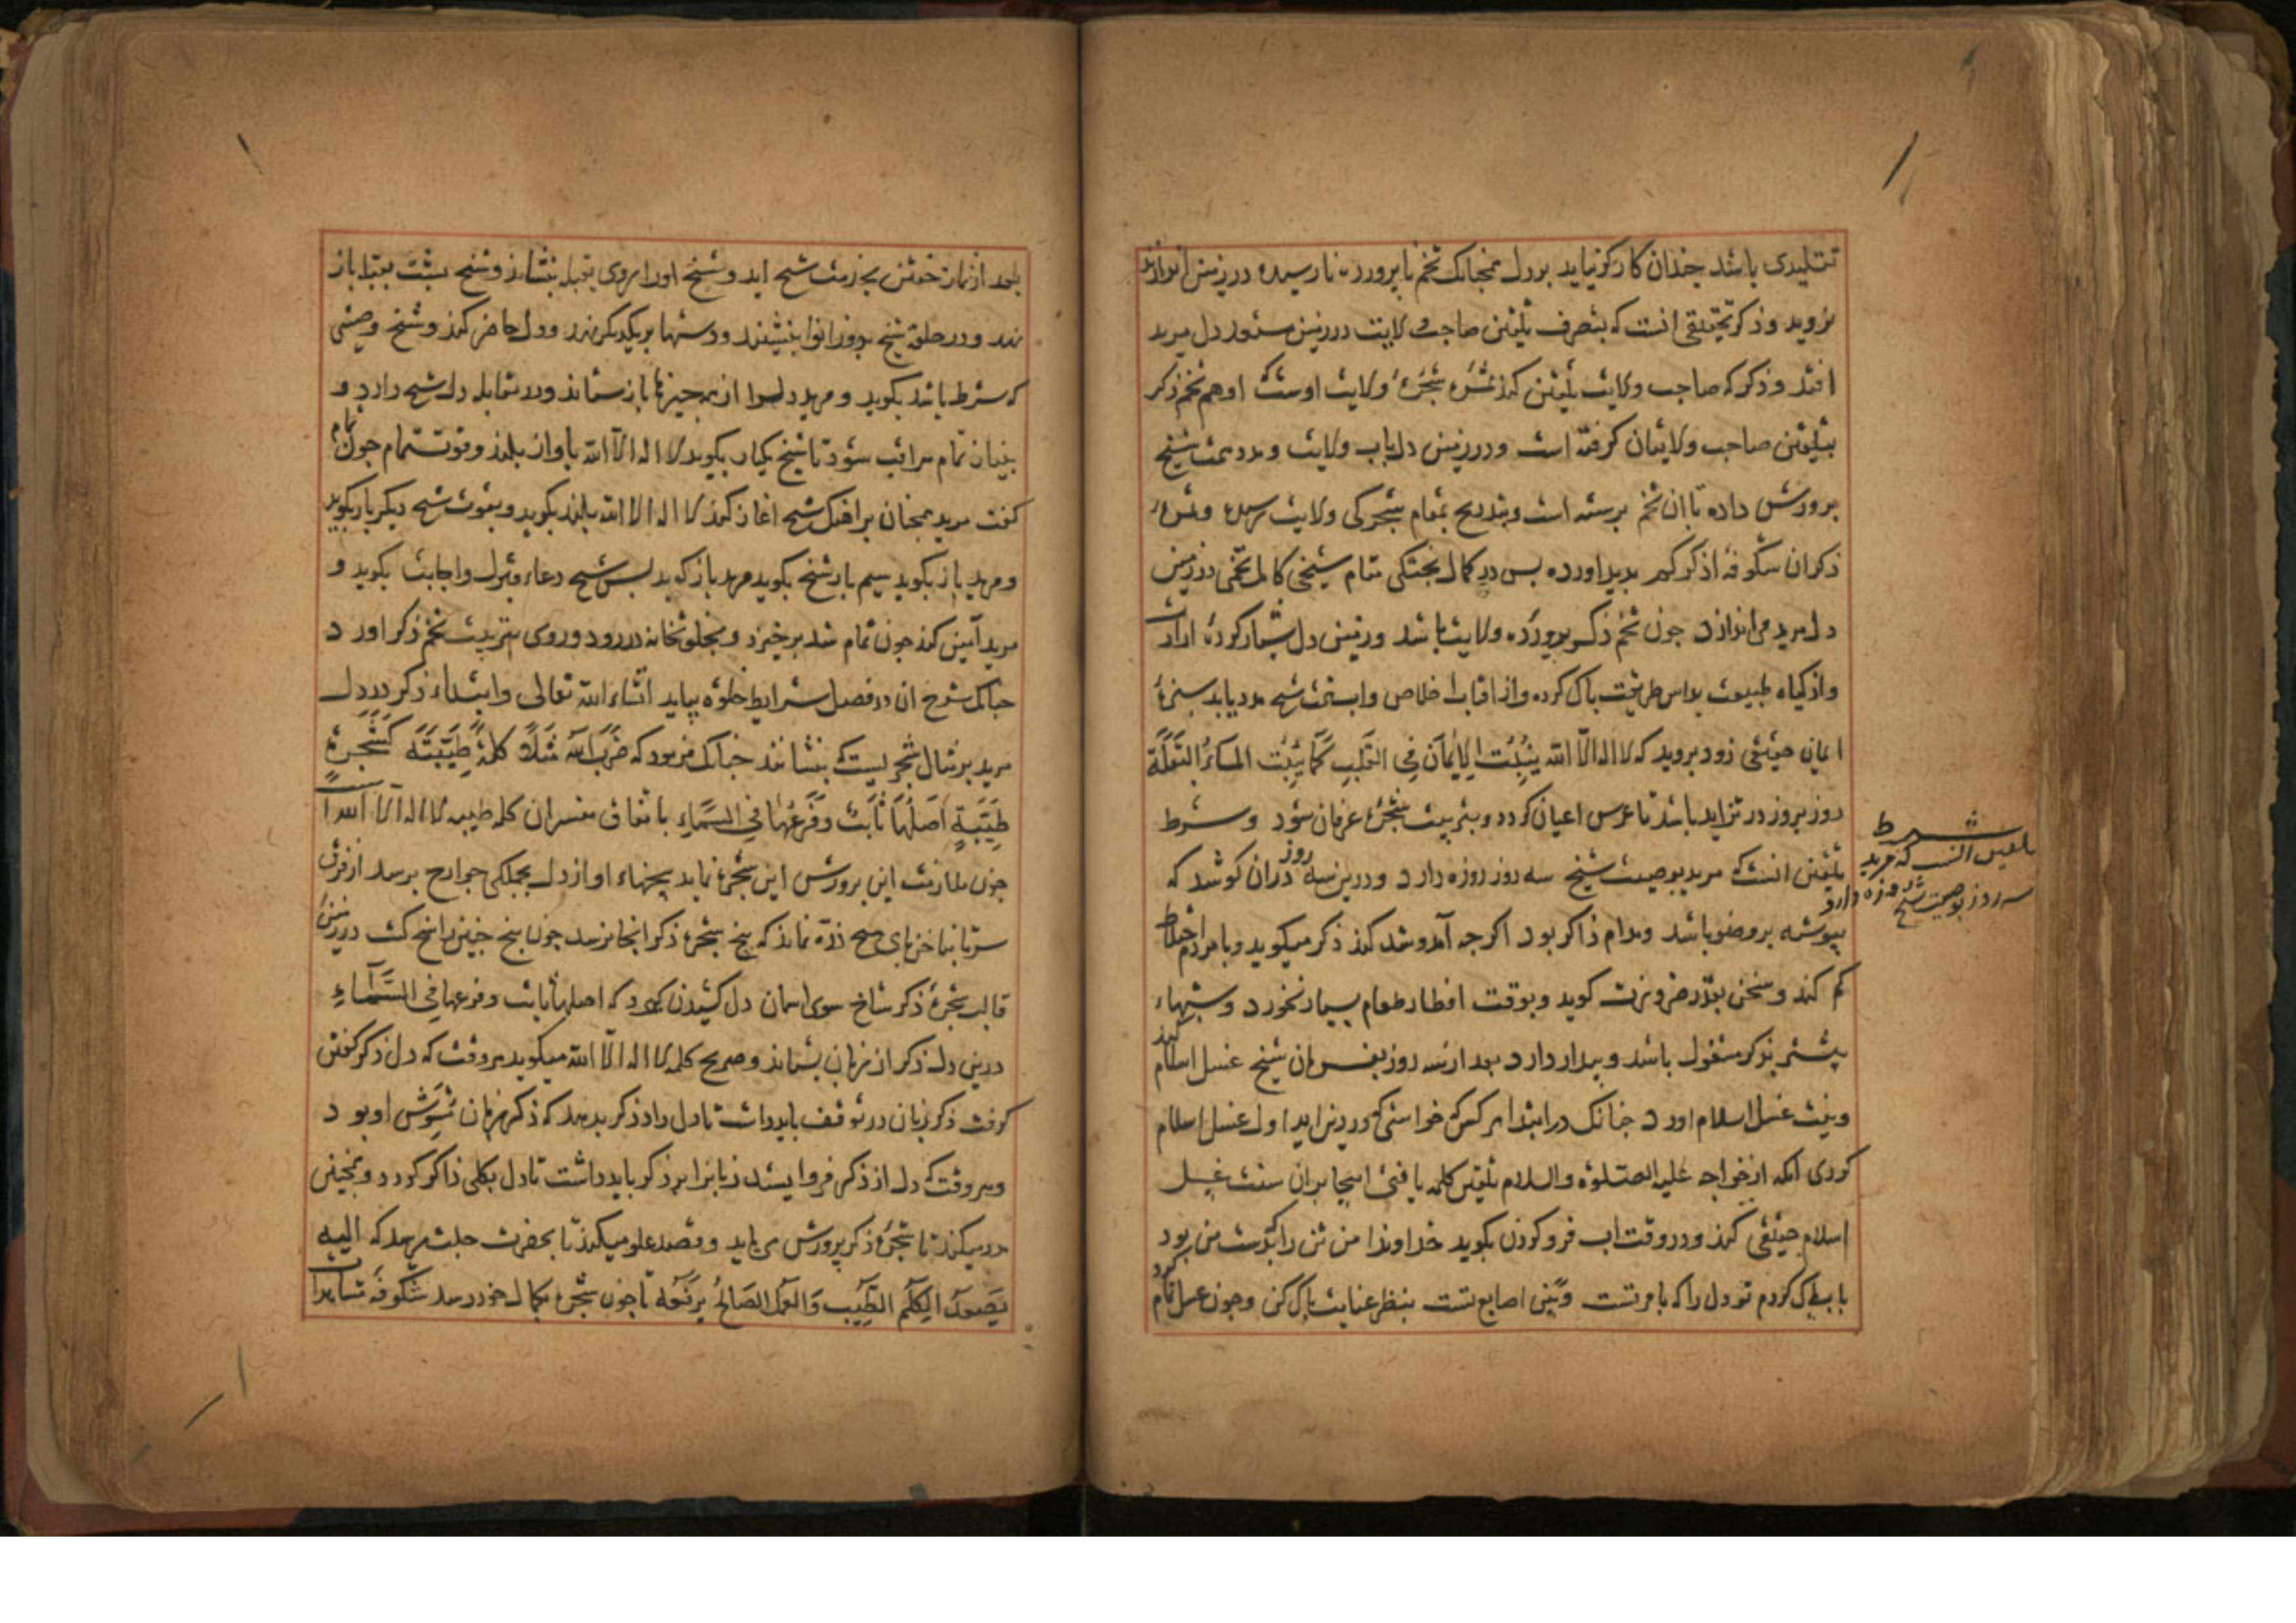 تقلیدی باشد چندان کارگر نیاید بر دل همچنانک تخم ناپرورده نارسیده در زمین اندازند
نروید و ذکر تحقیقی آنست که بتصرف تلقین صاحب ولایت در زمین مستعد دل مرید
افتد و ذکر که صاحب ولایت تلقین کند ثمرۀ شجرۀ ولایت اوست که او هم تخم ذکر
بتلقین صاحب ولایتان گرفته است و در زمین دل بآب ولایت و مدد همت شیخ
پرورش داده تا آن تخم برسته است و بتدریج بمقام شجرگی ولایت رسیده و ثمرۀ
ذکر از شکوفه اذکرکم بدید آورده پس در کمال پختگی مقام شیخی کامل تخمی در زمین
دل مرید می اندازد چون تخم ذکر پرورده ولایت باشد و زمین دل شیار کرده ارادت
و از گیاه طبیعت بداس طریقت پاک کرده و از آفتاب اخلاص و آب همت شیخ مدد یابد سبزۀ
ایمان حقیقی زود بروید که لا اله الا الله ینبت الایمان فی القلب کما ینبت الماء البقلة
روز بروز در تزاید باشد تا غرس اعیان گردد و بتربیت شجرۀ عرفان شود و شرط
تلقین آنست که مرید بوصیت شیخ سه روز روزه دارد و درین سه روز در آن کوشد که
پیوسته بر وضو باشد و مدام ذاکر بود اگرچه آمد و شد کند ذکر میگوید و با مردم اختلاط
کم کند و سخن بقدر ضرورت گوید و بوقت افطار طعام بسیار نخورد و شبهاء
بیشتر بذکر مشغول باشد و بیدار دارد بعد از سه روز بفرمان شیخ غسل اسلام کند
و نیت غسل اسلام آورد چنانک در ابتدا هر کس که خواستی که در دین آید اول غسل اسلام
کردی آنگه از خواجه علیه الصلوة والسلام تلقین کلمه یافتی اینجا بر آن سنت غسل
اسلام حقیقی کند و در وقت آب فرو کردن بگوید خداوندا من تن را که بدست من بود
بآب پاک کردم تو دل را که بامر تست و بین اصابع تست بنظر عنایت پاک کن و چون غسل تمام کرد
شرط
تلقین آنست که مرید
سه روز بوصیت شیخ روزه دارد
بعد از نماز خفتن بخدمت شیخ آید و شیخ او را روی بقبله بنشاند و شیخ پشت بقبله باز
نهد و در خدمت شیخ بدو زانو بنشیند و دستها بر یکدیگر نهد و دل حاضر کند و شیخ وصیتی
که شرط باشد بگوید و مرید دل را از همه چیزها باز ستاند و در مقابله دل شیخ دارد و
بنیاز تمام مراقب شود تا شیخ یکبار بگوید لا اله الا الله بآواز بلند و قوت تمام چون تمام
گفت مرید همچنان بر آهنگ شیخ آغاز کند لا اله الا الله بلند بگوید و بقوت شیخ دیگر بار بگوید
و مرید باز بگوید سیم بار شیخ بگوید مرید باز گوید پس شیخ دعاء قبول و اجابت بگوید و
مرید آمین کند چون تمام شد برخیزد و بخلوتخانه در رود و روی بتربیت تخم ذکر آورد
چنانک شرح آن در فصل شرایط خلوة بیاید انشاء الله تعالی و ابتداء ذکر در دل
مرید بر مثال شجریست که بنشانند چنانک فرمود که ضَرَبَ اللهُ مَثَلًا کَلِمَةً طَیِّبَةً کَشَجَرَةٍ
طَیِّبَةٍ اَصْلُهَا ثَابِتٌ وَفَرْعُهَا فِی السَّمَاءِ باتفاق مفسران کلمه طیبه لا اله الا الله است
چون ملازمت این پرورش این شجره نماید بیخهاء او از دل بجملگی جوارح برسد از فرق
سر تا بناخن پای هیچ ذره نماند که بیخ شجرۀ ذکر آنجا نرسد چون بیخ چنین راسخ گشت در زمین
قالب شجرۀ ذکر شاخ سوی آسمان دل کشیدن گیرد که اصلها ثابت و فرعها فی السَّمَاءِ
درین دل ذکر از زبان بستاند و صریح کلمه لا اله الا الله میگوید هر وقت که دل ذکر گفتن
گرفت ذکر زبان در توقف باید داشت تا دل داد ذکر بدهد که ذکر زبان مشوش او بود
و هر وقت که دل از ذکر فرو ایستد زبانرا بر ذکر باید داشت تا دل بکلی ذاکر گردد و همچنین
مدد میکند تا شجرۀ ذکر پرورش می یابد و قصد علو میکند تا بحضرت جلت میرسد که الیه
یَصْعَدُ الکَلِمُ الطَّیِّبُ وَالعَمَلُ الصَالِحُ یَرْفَعُهُ تا چون شجره بکمال خود رسد شکوفه مشاهدات